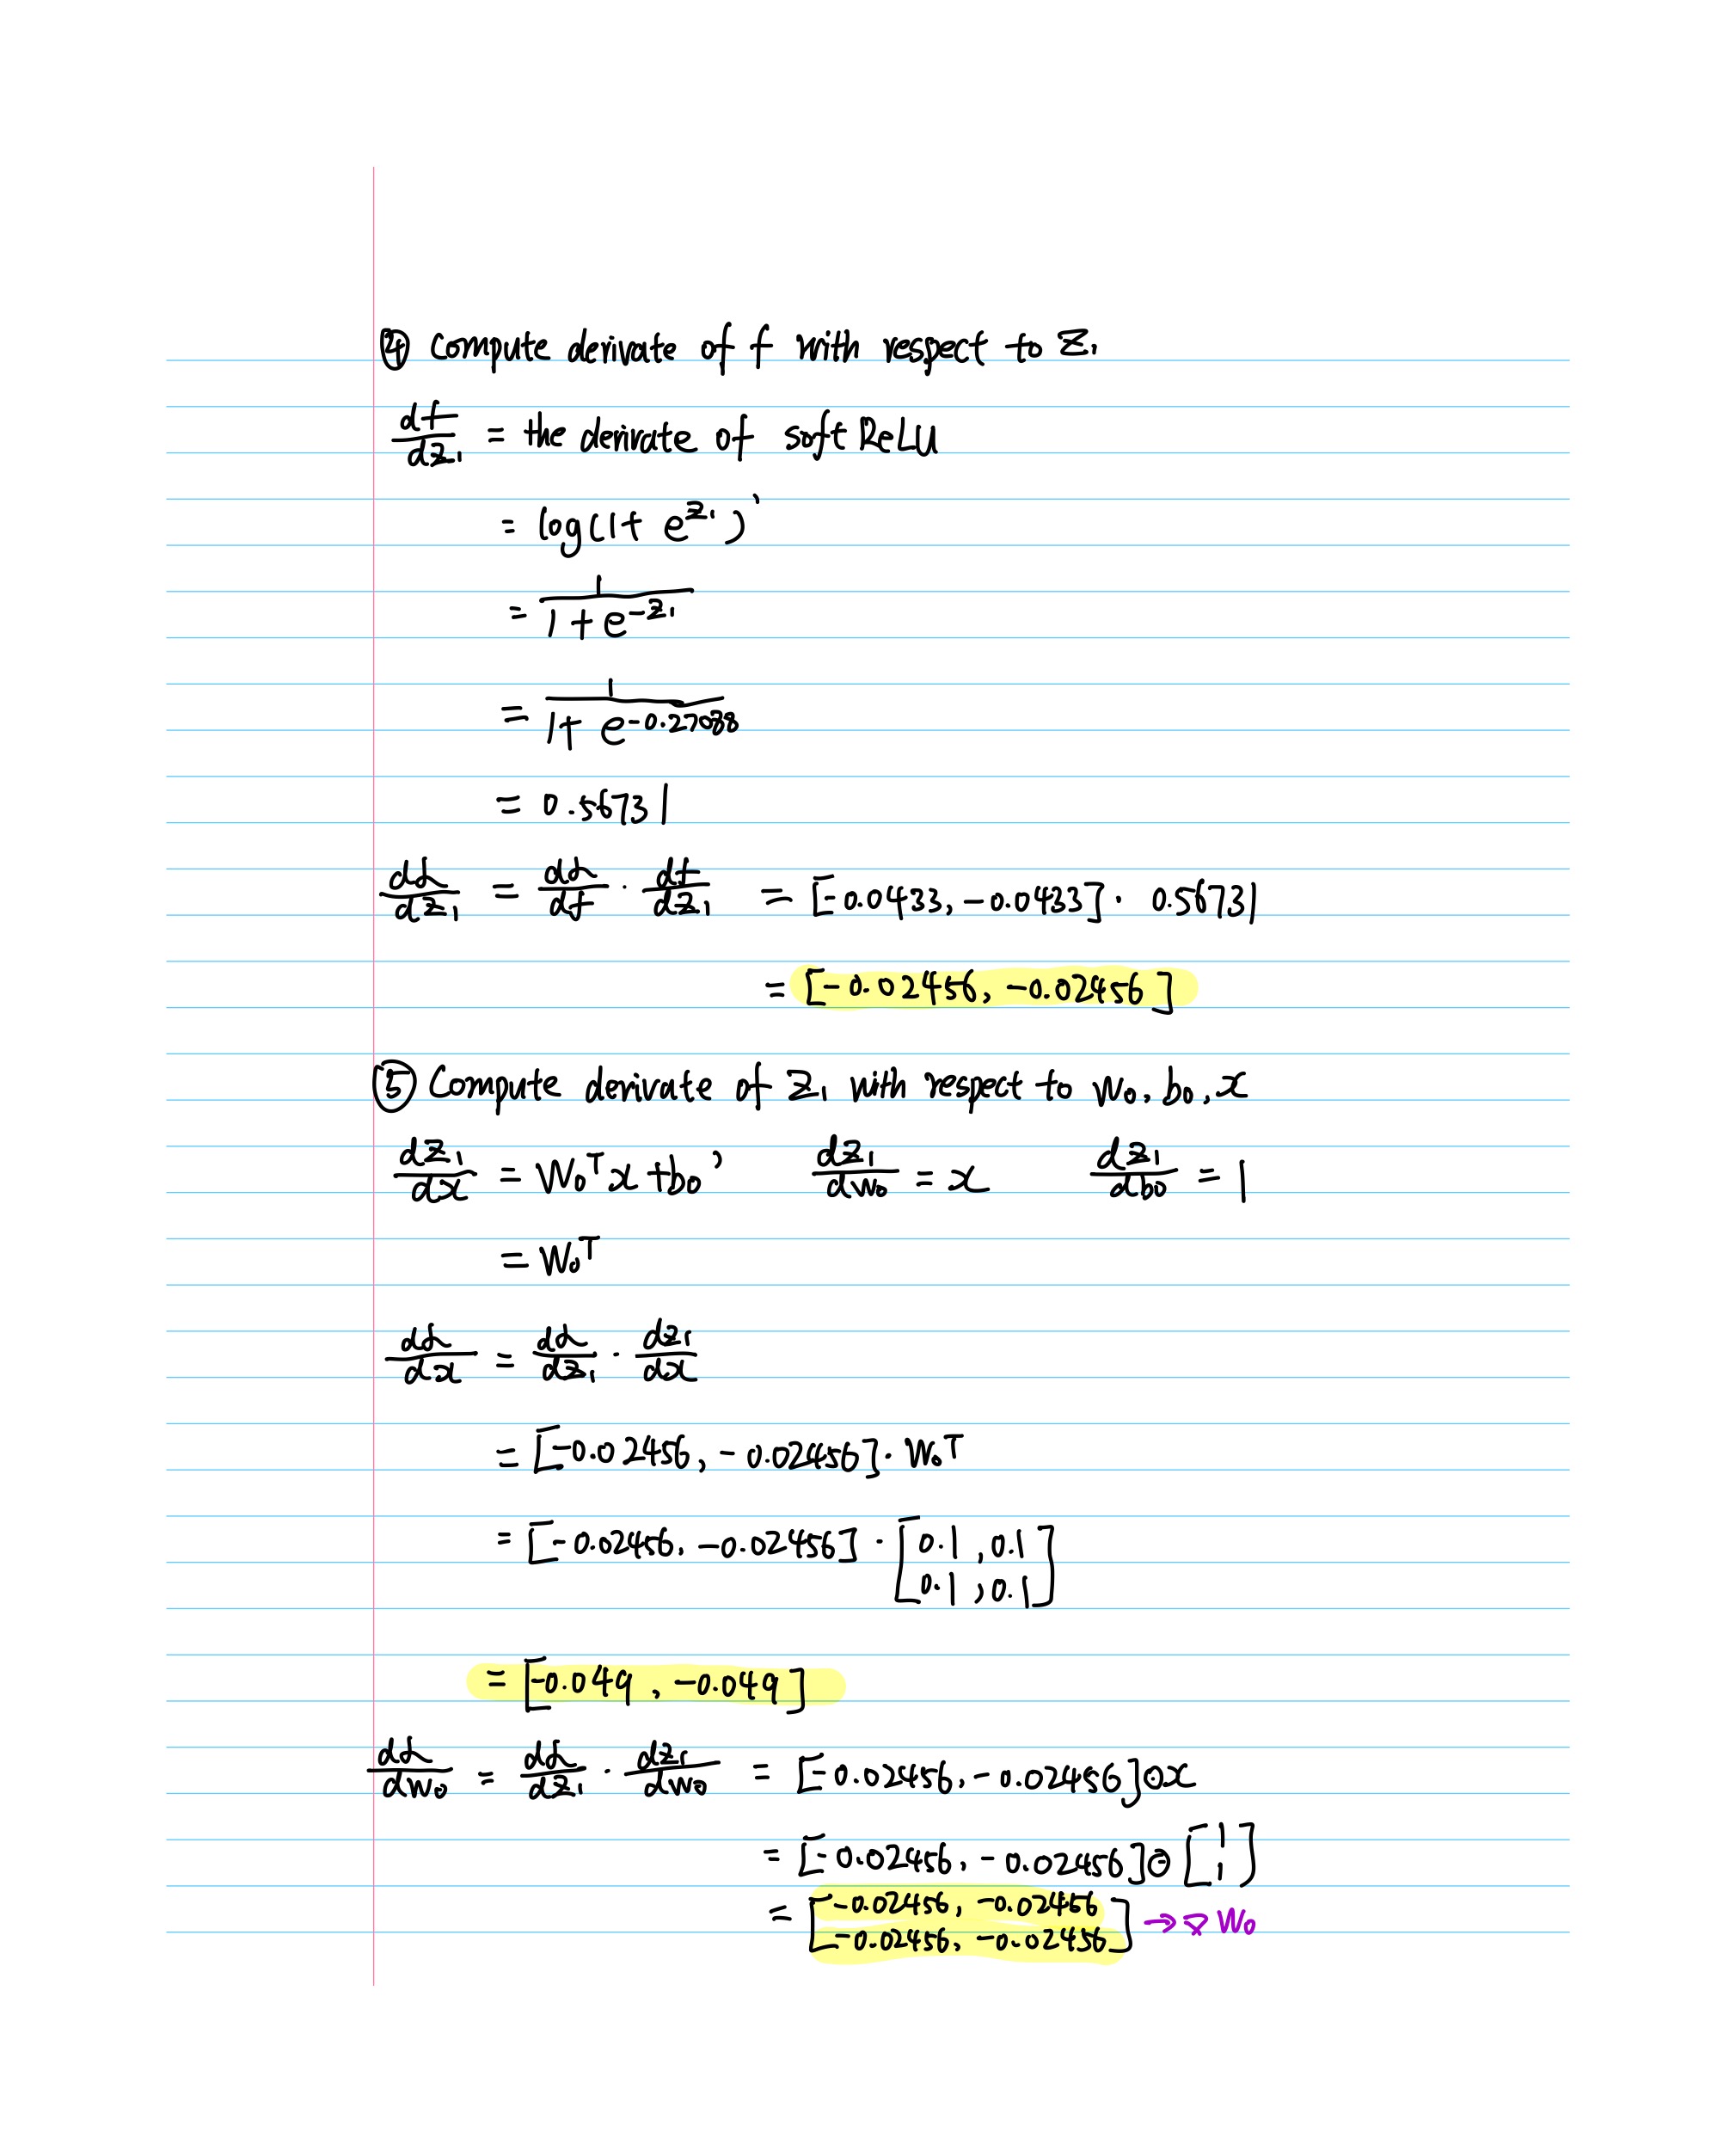 ④ Compute derivate of f with respect to Z₁
df/dZ₁ = the derivate of soft ReLU
= log(1+ e^Z₁)'
= 1/(1+e^-Z₁)
= 1/(1+ e^-0.27088)
= 0.56731
dL/dZ₁ = dL/df · df/dZ₁ = [-0.0433, -0.0433] · 0.56731
= [-0.02456, -0.02456]
⑤ Compute derivate of Z₁ with respect to W₀, b₀, x
dZ₁/dx = W₀ᵀx+b₀' dZ₁/dW₀ = x dZ₁/db₀ = 1
= W₀ᵀ
dL/dx = dL/dZ₁ · dZ₁/dx
= [-0.02456, -0.02456] · W₀ᵀ
= [-0.02456, -0.02456] · [0.1, 0.1
0.1, 0.1]
= [-0.049, -0.049]
dL/dW₀ = dL/dZ₁ · dZ₁/dW₀ = [-0.02456, -0.02456]⊙x
= [-0.02456, -0.02456]⊙[1
1]
= [-0.02456, -0.02456
-0.02456, -0.02456] → ∇W₀